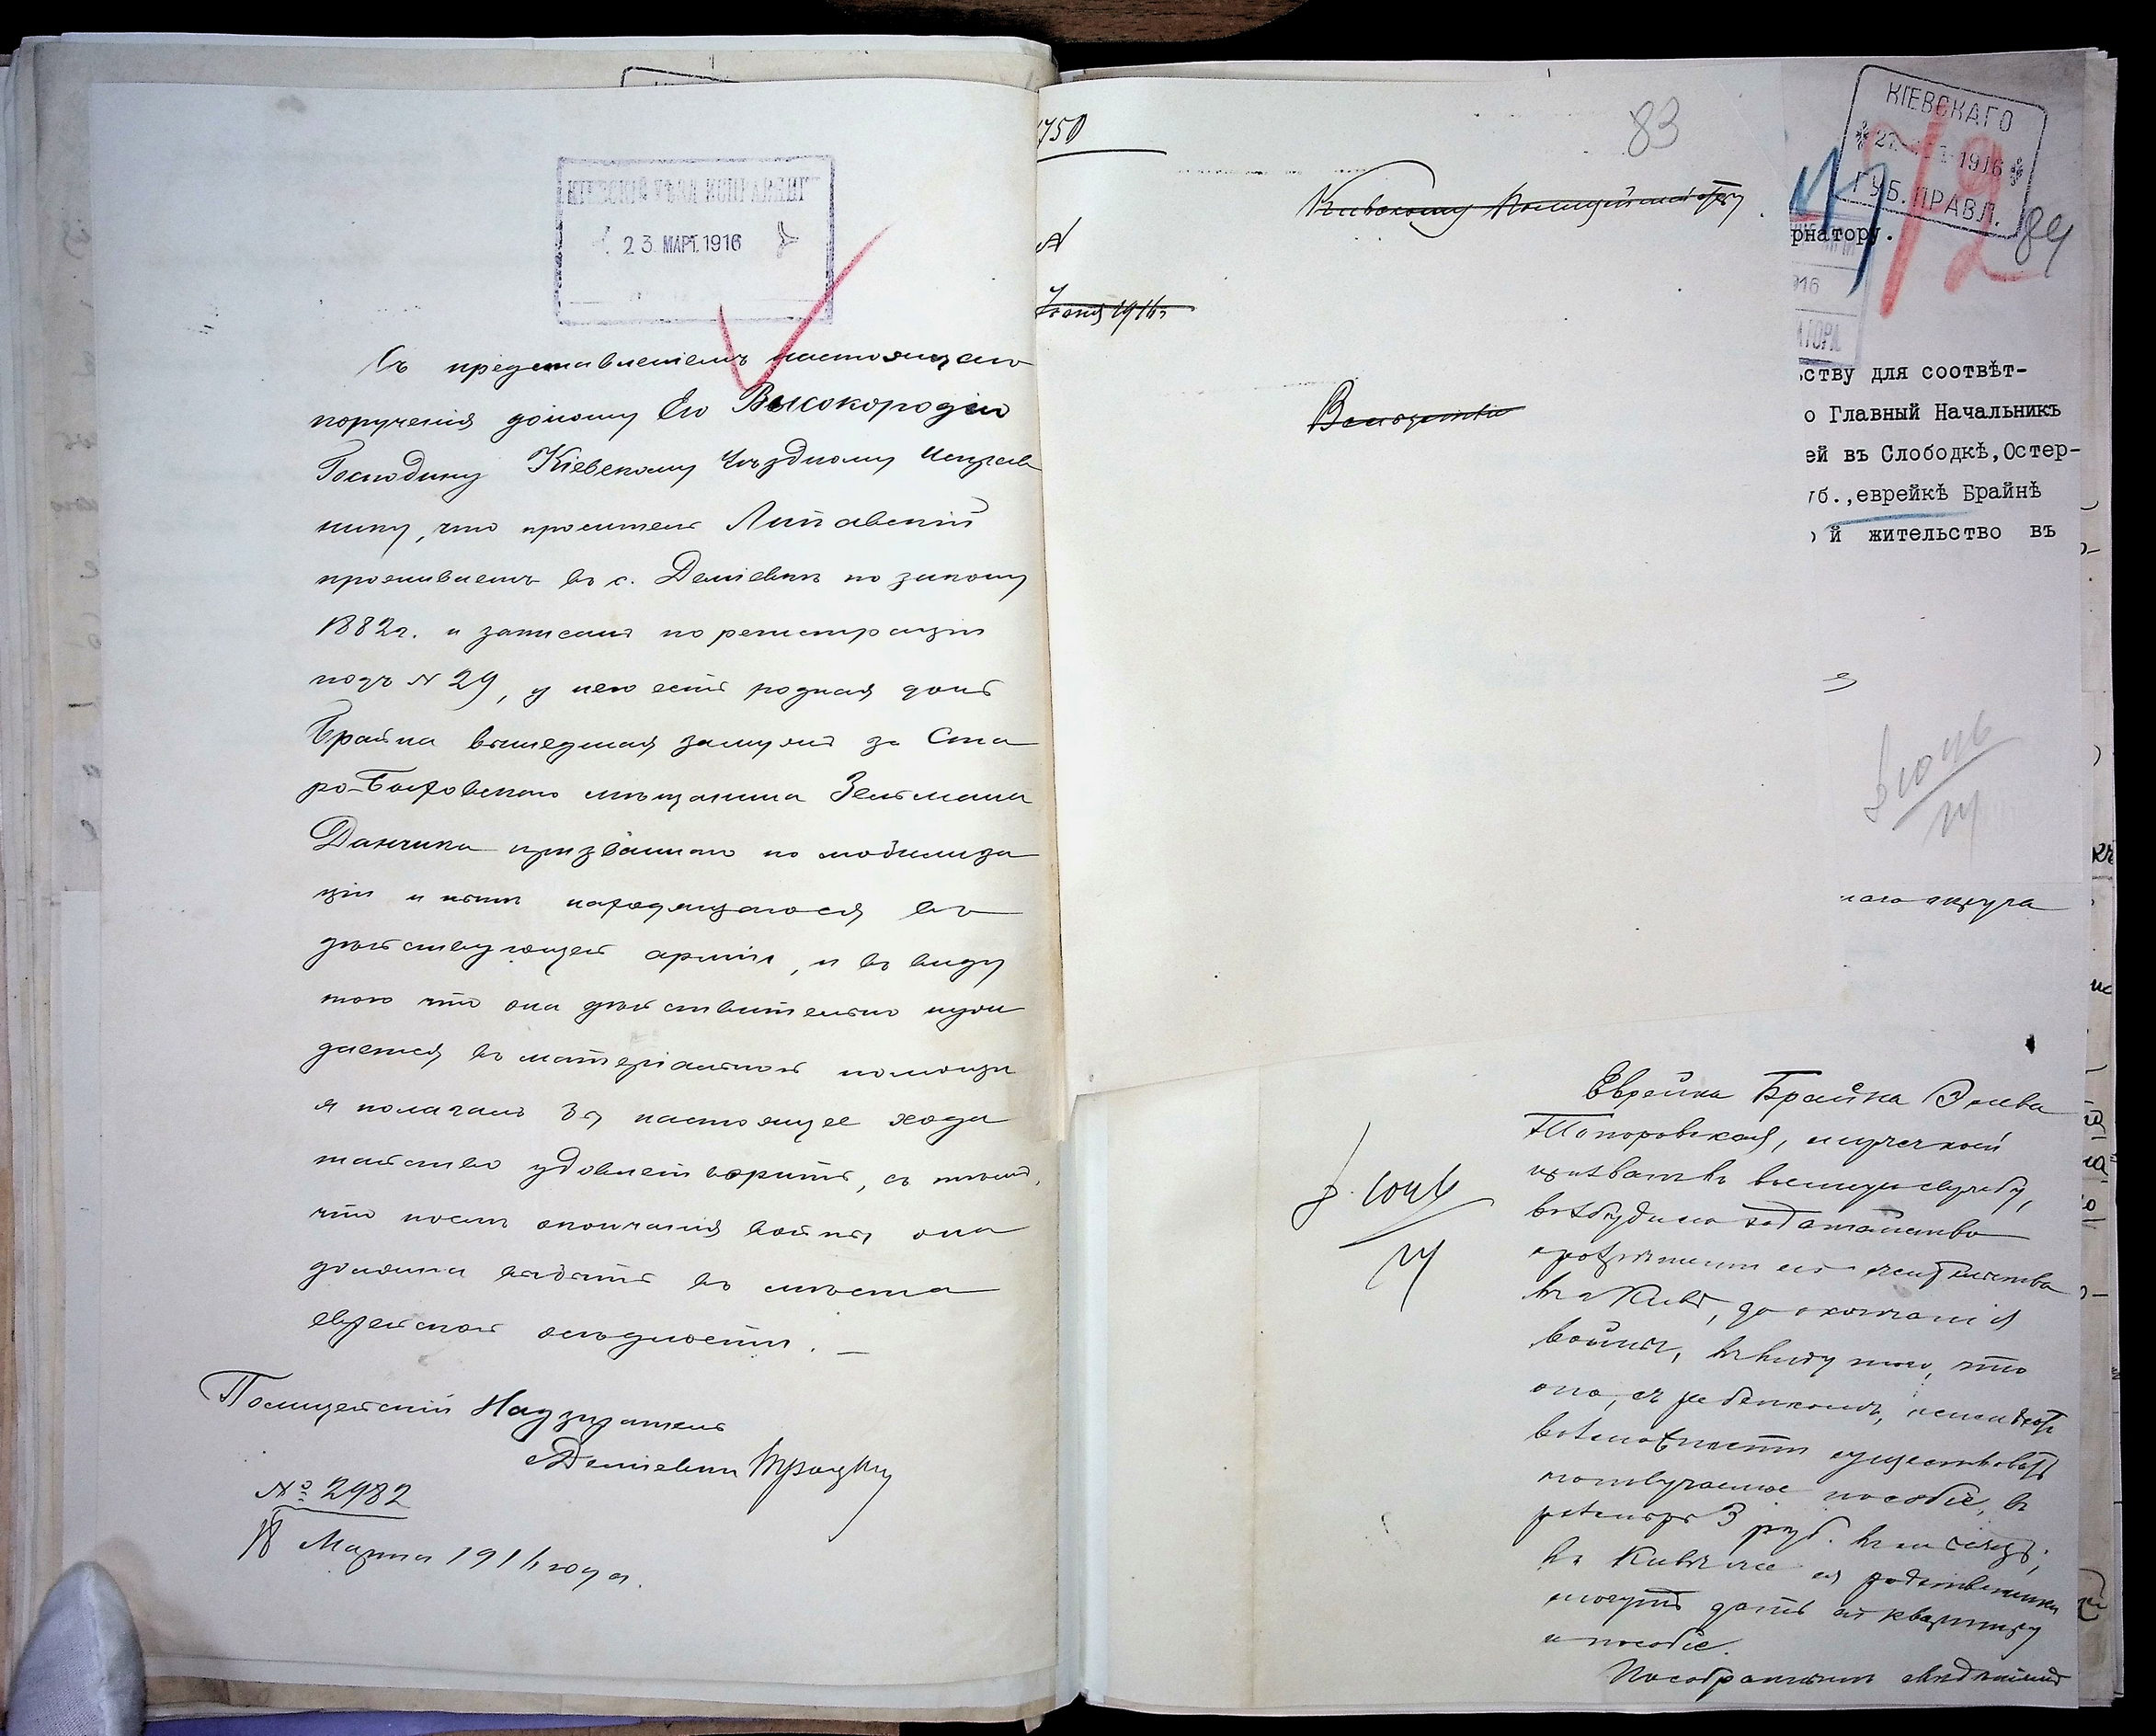 КІЕВСКІЙ УѢЗД. ИСПРАВНИК
23. МАРТ. 1916
Съ представленіемъ настоящаго
порученія доношу Его Высокородію
Господину Кіевскому Уѣздному Исправ
нику, что проситель Липавскій
проживаетъ въ с. Деміевкѣ по закону
1882 г. и записанъ по регистраціи
подъ № 29, у него есть родная дочь
Брайна вышедшая замужъ за Ста
ро-Быховскаго мѣщанина Зельмана
Данчика призваннаго по мобилиза
ціи и нынѣ находящагося въ
дѣйствующей арміи, и въ виду
того что она дѣйствительно нуж
дается въ матеріальной помощи
я полагалъ бы настоящее хода
тайство удовлетворить, съ тѣмъ,
что послѣ окончанія войны она
должна выбыть въ мѣста
еврейской осѣдлости. —
Полицейскій Надзиратель
Деміевки
№ 2982
18 Марта 1916 года.
1750
83
Кіевскому Полицеймейстеру
КІЕВСКАГО
27 1916
ГУБ. ПРАВЛ.
72
84
рнатору.
916
ТОРА
№
Іюня 1916 г.
ству для соотвѣт-
о Главный Начальникъ
ей въ Слободкѣ, Остер-
уб., еврейкѣ Брайнѣ
й жительство въ
Вслѣдствіе
наго округа
Еврейка Брайна
Топоровская,
призванъ въ военную службу,
возбудила ходатайство
о разрѣшеніи ей жительства
въ г. Кіевѣ, до окончанія
войны, въ виду того, что
она, съ ребенкомъ, не имѣетъ
возможности существовать
на получаемое пособіе, въ
размѣрѣ 3 руб. въ мѣсяцъ;
въ Кіевѣ же ея родственники
могутъ дать ей квартиру
и пособіе.
По собраннымъ свѣдѣніямъ